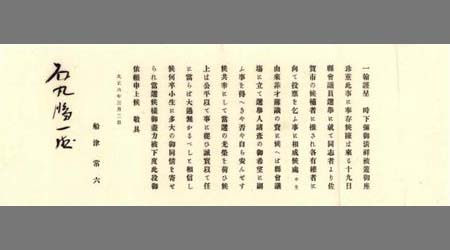 一翰謹呈 時下彌御清祥被遊御座
珍重此事に奉存候陳は來る十九日
縣會議員選擧に就て同志者より佐
賀市の候補者に推され各有權者に
向て投票を乞ふ事に相成候處
由來菲才薄識の質に候へば縣會議
場に立て選擧人諸氏の御希望に副
ふ事を得べきや否や自ら安んぜず
候共幸にして當選の光榮を荷ひ候
上は公平以て事に從ひ誠實以て任
に當らば大過無かるべしと相信し
候何卒小生に多大の御同情を寄せ
られ當選候樣御盡力被下度此段御
依賴申上候 敬具
大正六年三月二日
船津常六